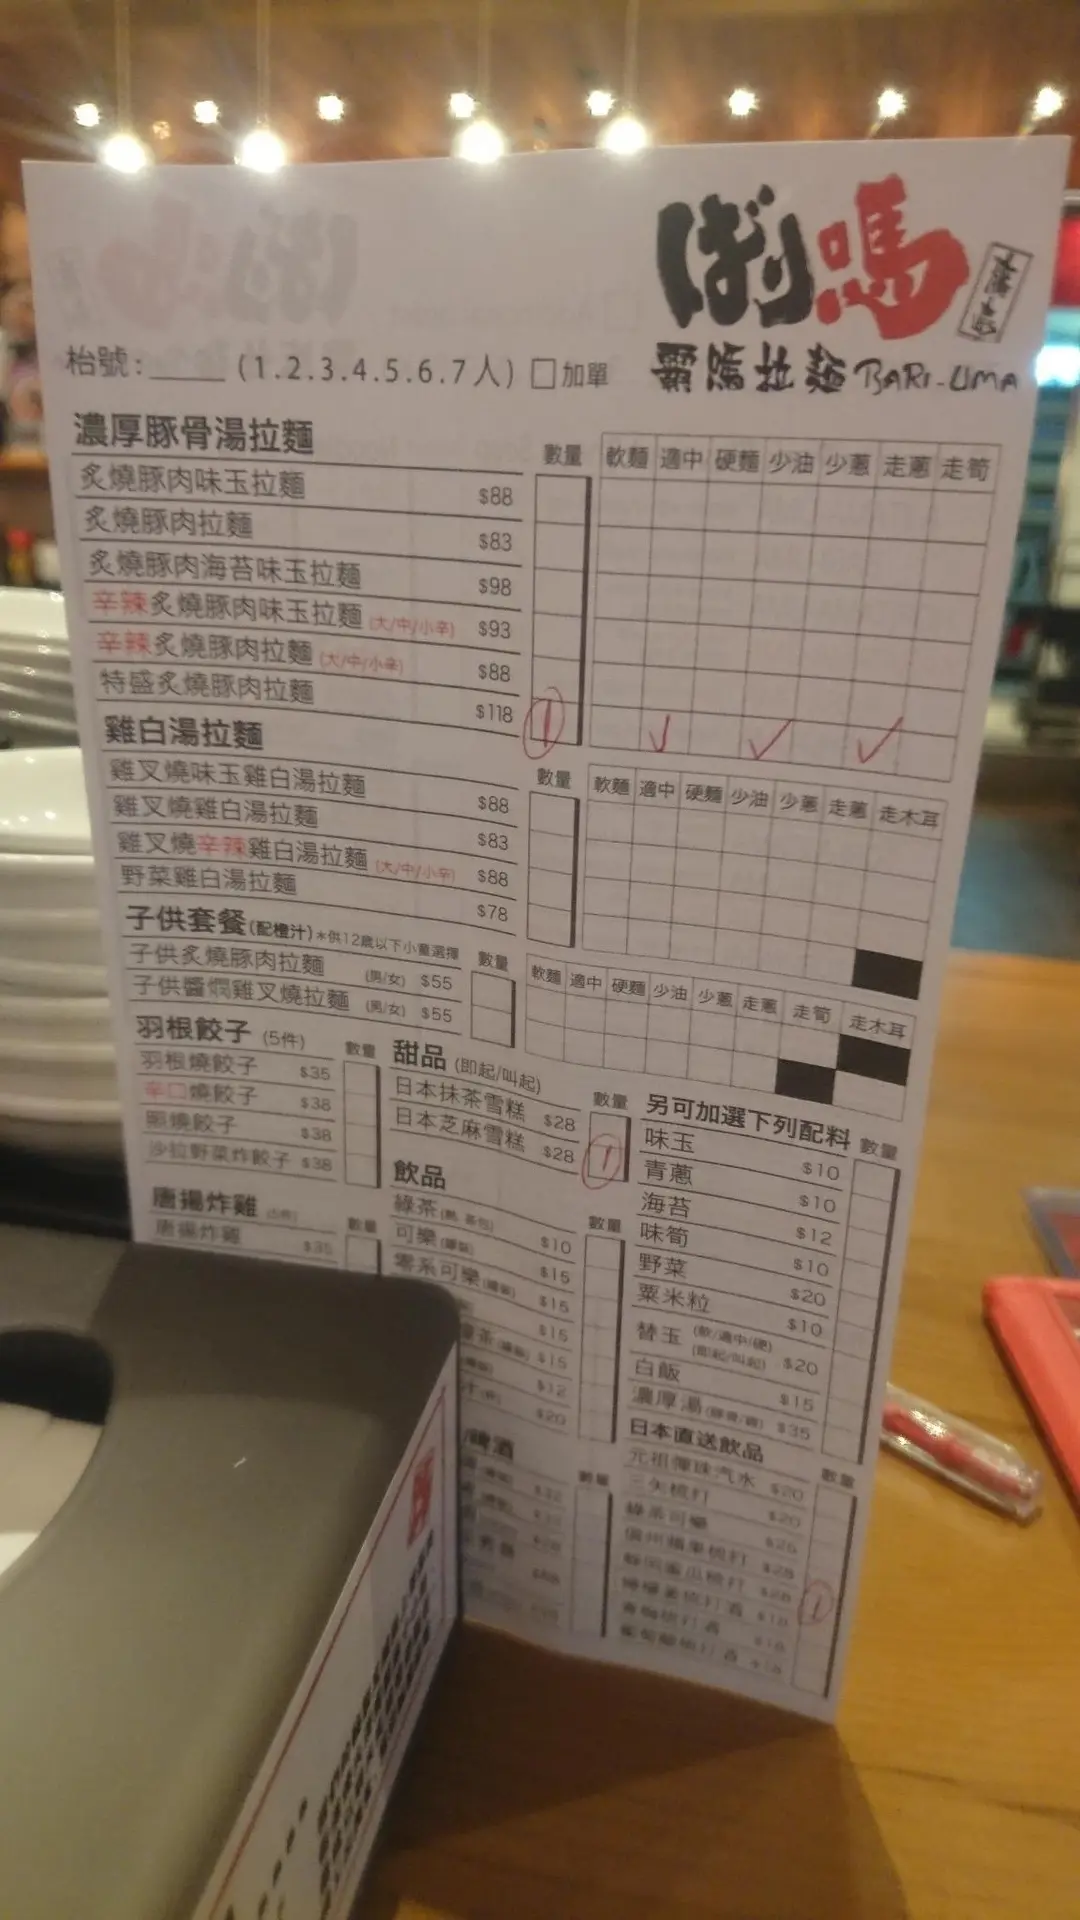 ばり嗎
霸嗎拉麵 BARI-UMA
枱號:____ (1.2.3.4.5.6.7人) □加單
濃厚豚骨湯拉麵 數量 軟麵 適中 硬麵 少油 少蔥 走蔥 走筍
炙燒豚肉味玉拉麵 $88
炙燒豚肉拉麵 $83
炙燒豚肉海苔味玉拉麵 $98
辛辣炙燒豚肉味玉拉麵 (大/中/小辛) $93
辛辣炙燒豚肉拉麵 (大/中/小辛) $88
特盛炙燒豚肉拉麵 $118 1 ✓ ✓ ✓
雞白湯拉麵 數量 軟麵 適中 硬麵 少油 少蔥 走蔥 走木耳
雞叉燒味玉雞白湯拉麵 $88
雞叉燒雞白湯拉麵 $83
雞叉燒辛辣雞白湯拉麵 (大/中/小辛) $88
野菜雞白湯拉麵 $78
子供套餐(配橙汁)*供12歲以下小童選擇 數量 軟麵 適中 硬麵 少油 少蔥 走蔥 走筍 走木耳
子供炙燒豚肉拉麵 (男/女) $55
子供醬燜雞叉燒拉麵 (男/女) $55
羽根餃子 (5件) 數量
羽根燒餃子 $35
辛口燒餃子 $38
照燒餃子 $38
沙拉野菜炸餃子 $38
唐揚炸雞 數量
唐揚炸雞 $35
甜品 (即起/叫起) 數量
日本抹茶雪糕 $28
日本芝麻雪糕 $28 1
飲品 數量
綠茶 $10
可樂 $15
零系可樂 $15
茶 $15
$15
$12
$20
啤酒 數量
另可加選下列配料 數量
味玉 $10
青蔥 $10
海苔 $12
味筍 $10
野菜 $20
粟米粒 $10
替玉 (軟/適中/硬) (即起/叫起) $20
白飯 $15
濃厚湯 $35
日本直送飲品 數量
元祖彈珠汽水 $20
三矢梳打 $20
綠茶可樂 $25
信州蘋果梳打 $28
梳打 $28
1